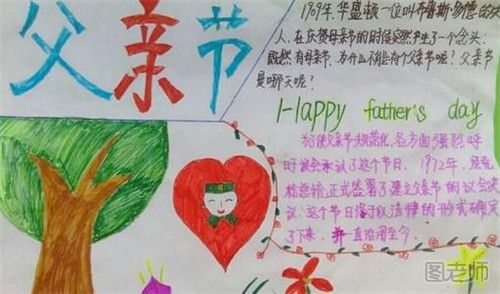 父亲节
1909年,华盛顿一位叫布鲁斯·多德的
人,在庆贺母亲节的时候突然产生了一个念头:
既然有母亲节,为什么不能有个父亲节呢?父亲节
是哪天呢?
Happy father's day
为了使父亲节规范化,各方面强烈呼
议会承认了这个节日。1972年,
松总统正式签署了建立父亲节的议会决
议。这个节日终于以法律的形式确定
了下来,并一直沿用至今。
图老师